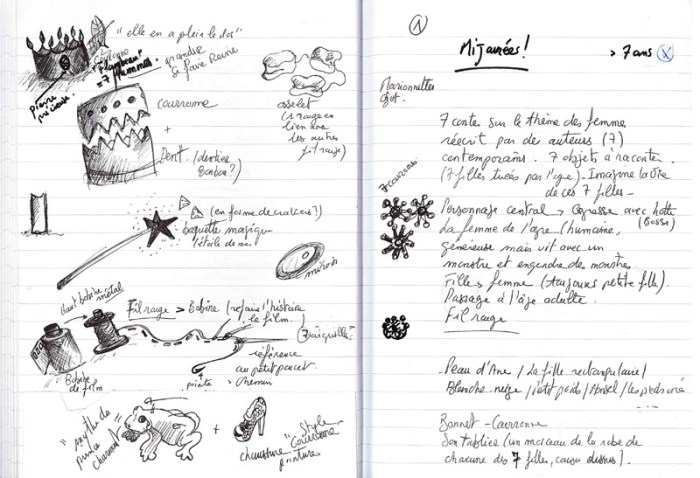 "elle en a plein le dos"
"Flambeau"
= 7 flammes
grandir
le faire Reine
pierre
précieuse
couronne
+
Dent (dentier
Bonbon ?)
osselet
(1 rouge en
lien avec
les autres
fil rouge)
(en forme de croissant ?)
baguette magique
(étoile de mer)
miroir
(haut bobine métal)
Fil rouge > Bobine (refaire l'histoire
le film...)
référence
au petit poucet
→ chemin
Bobine
de film
prince
charmant
"
=
+
chaussure
"Style
peinture
1
Mijaurées !
> 7 ans
Marionnettes
objet.
7 contes sur le thème des femmes
réécrit par de auteurs (7)
contemporains. 7 objets à raconter.
(7 filles tuées par l'ogre). Imagine la vie
de ces 7 filles -
7 couronnes
Personnage central → Ogresse avec hotte
(Bosse)
La femme de l'ogre (humaine,
généreuse mais vit avec un
monstre et engendre des monstres
Filles → femme (toujours petite fille).
Passage à l'âge adulte.
Fil rouge
- Peau d'Ane / La fille rectangulaire /
Blanche-neige / Petit poids / Hansel / les
...
Bonnet - Couronne
Son tablier (un morceau de la robe de
chacune des 7 filles, cousu dessus).